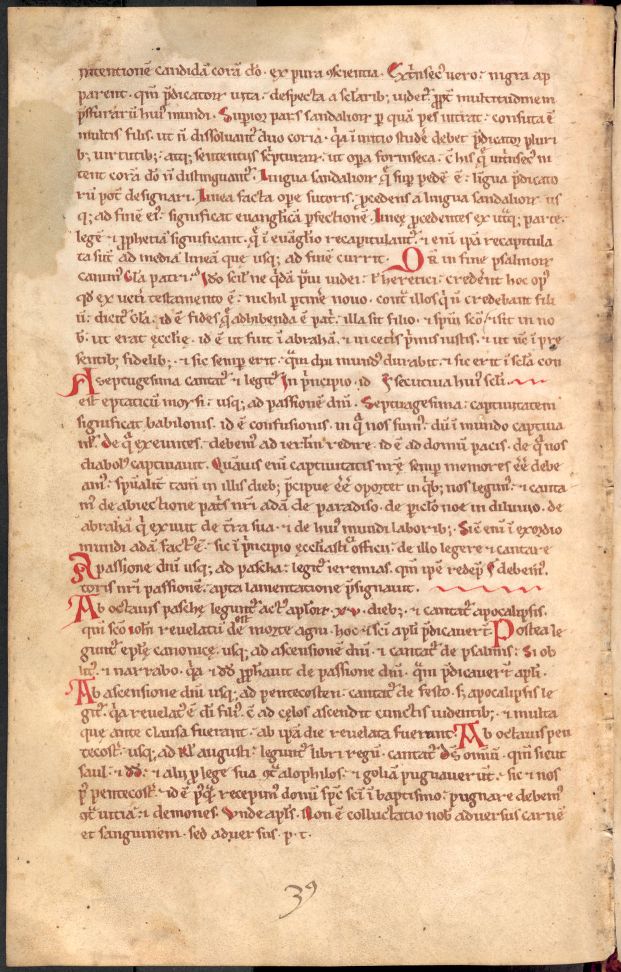 intentionē candidā corā dō. ex pura ɔscientia. Extⁱnsecˀ vero: nigra ap
parent. qm̄ p̄dicatorꝝ uita: despecta a sclarib; uidetˀ. ꝓpt̄ multitudinem
pssurarū huiˀ mundi. Supior pars sandaliorꝝ p quā pes intrat: consuta ē
multis filis. ut n̄ dissoluant duo coria. qͣ i initio studē debet p̄dicatoꝛ pluri
b; uirtutib; atq; sententiis sc̄pturarꝝ. ut oꝑa forinseca. c̄ his q̄ intⁱnsecˀ ni
tent corā dō n̄ distinguantˀ. Lingua sandaliorꝝ q̄ suꝑ pedē ē: lingua p̄dicato
rū pot̄ designari. Linea facta ope sutoris. ꝓcedens a lingua sandaliorꝝ us
q; ad finē eiˀ: significat euanglicā ꝑfectionē. Lineę ꝓcedentes ex utͣq; parte:
legē ⁊ ꝓphetiā significant. q̄ i euāglio recapitulantˀ. ⁊ enī ipā recapitula
ta sūt ad mediā lineā que usq; ad finē currit. Qn̄ in fine psalmorꝝ
canimˀ Gla patri: Ido scil; ne qͣdā pui uideri ł heretici: credēnt hoc opˀ
qd̄ ex ueti testamento ē: nichil ptinē nouo. contͣ illosq; n̄ credebant fili
ū: dictˀ Gla. id ē fides q̄ adhibenda ē patⁱ. illa sit filio. ⁊ spūi scō. ⁊ sit in no
b. ut erat ęcclię. id ē ut fuit i abrahā. ⁊ in cetis pⁱmis iustis. ⁊ ut nc̄ i prę
sentib; fidelib;. ⁊ sic semꝑ erit. qͣm diu mundˀ durabit. ⁊ sic erit i scla con
A septuagesima cantatˀ ⁊ legitˀ In pⁱncipio. id ɪsecutiua huiˀ scli.
est eptaticū moysi. usq; ad passionē dn̄i. Septuagesima: captiuitatem
significat babilonis. id ē confusionis. in q̄ nos sumˀ. dū i mundo captiua
mˀ. de qͣ exeuntes. debemˀ ad ierłm redire. id ē ad domū pacis. de qͣ nos
diabolˀ captiuauit. Quāuis enī captiuitatis nrę semꝑ memores ēe debe
amˀ: spūalit̄ tam̄ in illis dieb; pⁱncipue ēe oportet in qⁱb; nos legimˀ. ⁊ canta
mˀ de abiectione patͥs nrī adā de paradiso. de piclō noe in diluuio. de
abrahā q̄ exiuit de tr̄a sua. ⁊ de huiˀ mundi laborib;. Sic enī i exordio
mundi adā factˀ ē: sic i pⁱncipio ęcclesiastⁱ officiū. de illo legere ⁊ cantare
A passione dn̄i usq; ad pascha: legitˀ ieremias. qm̄ ipē redēp debemˀ.
toris nrī passionē: apta lamentatione pⁱsignauit.
Ab octauis paschę leguntˀ actˀ aplorꝝ .xv. dieb; ⁊ cantatˀ apocalipsis.
qm̄ scō ioħi reuelatū est de morte agni. hoc ⁊ sc̄i apłi p̄dicauer̄t. Postea le
guntˀ epłę canonicę. usq; ad ascensionē dn̄i. ⁊ cantatˀ de psalmis: Si ob
litˀ. ⁊ narrabo. qͣ ⁊ dd̄ ꝓphauit de passione dn̄i. qm̄ p̄dicauer̄t apłi.
Ab ascensione dn̄i usq; ad pentecosten: cantatˀ de festo. s; apocalipsis le
gitˀ. qͣ reuelatˀ ē di filiˀ. ē ad cęlos ascendit cunctis uidentib; ⁊ multa
que ante clausa fuerant. ab ipā die reuelata fuerunt. Ab octauis pen
tecostˀ. usq; ad kł augusti: leguntˀ libri regū. cantatˀ Ds̄ omiū. qm̄ sicut
saul. ⁊ dd̄. ⁊ alii ꝓ lege sua ɔtͣ alophilos. ⁊ goliā pugnauer̄t: sic ⁊ nos
pˀ pentecostˀ. id ē pˀq̄ recepimˀ donū spc̄ sc̄i i baptismo: pugnare debemˀ
ɔtͣ uitia. ⁊ demones. Vnde apłs. Non ē colluctatio nob aduersus carnē
et sanguinem. sed aduersus .p. t.
39